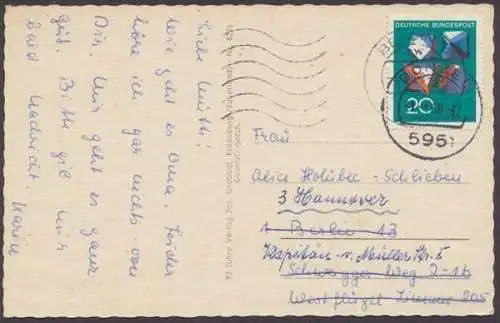 Liebe Mutti!
Wie geht es Oma. Leider
höre ich gar nichts von
Dir. Mir geht es ganz
gut. Bitte gib mir
bald Nachricht. Karin
DEUTSCHE BUNDESPOST
20
595
Frau
Alice Holubec-Schlieben
3 Hannover
1 Berlin 13
Kapitän-v.-Müller Str. 5
Schwegger Weg 2-16
Westflügel Zimmer 205